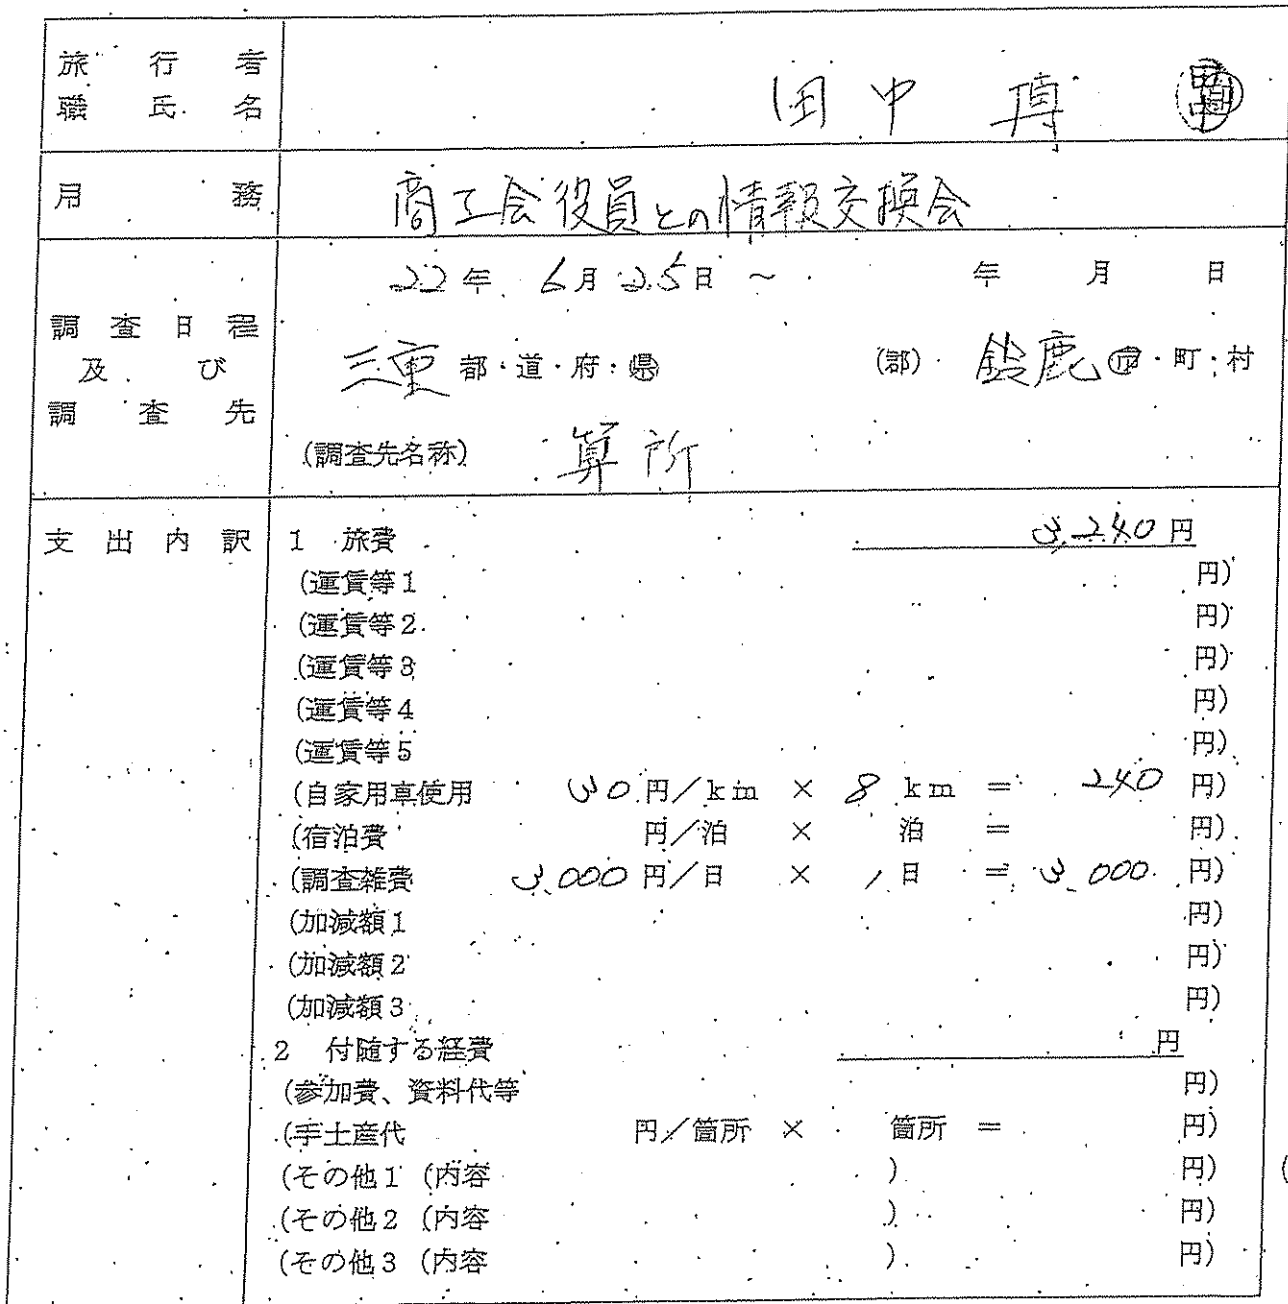 旅行者
職氏名
田中 博
用務
商工会役員との情報交換会
22年 6月 25日 ~ 年 月 日
調査日程
及び
調査先
三重 都・道・府・県 (郡) 鈴鹿 市・町・村
(調査先名称) 算所
支出内訳 1 旅費 3,240円
(運賃等1 円)
(運賃等2 円)
(運賃等3 円)
(運賃等4 円)
(運賃等5 円)
(自家用車使用 30円/km × 8 km = 240 円)
(宿泊費 円/泊 × 泊 = 円)
(調査雑費 3,000円/日 × 1日 = 3,000 円)
(加減額1 円)
(加減額2 円)
(加減額3 円)
2 付随する経費 円
(参加費、資料代等 円)
(手土産代 円/箇所 × 箇所 = 円)
(その他1 (内容 ) 円)
(その他2 (内容 ) 円)
(その他3 (内容 ) 円)